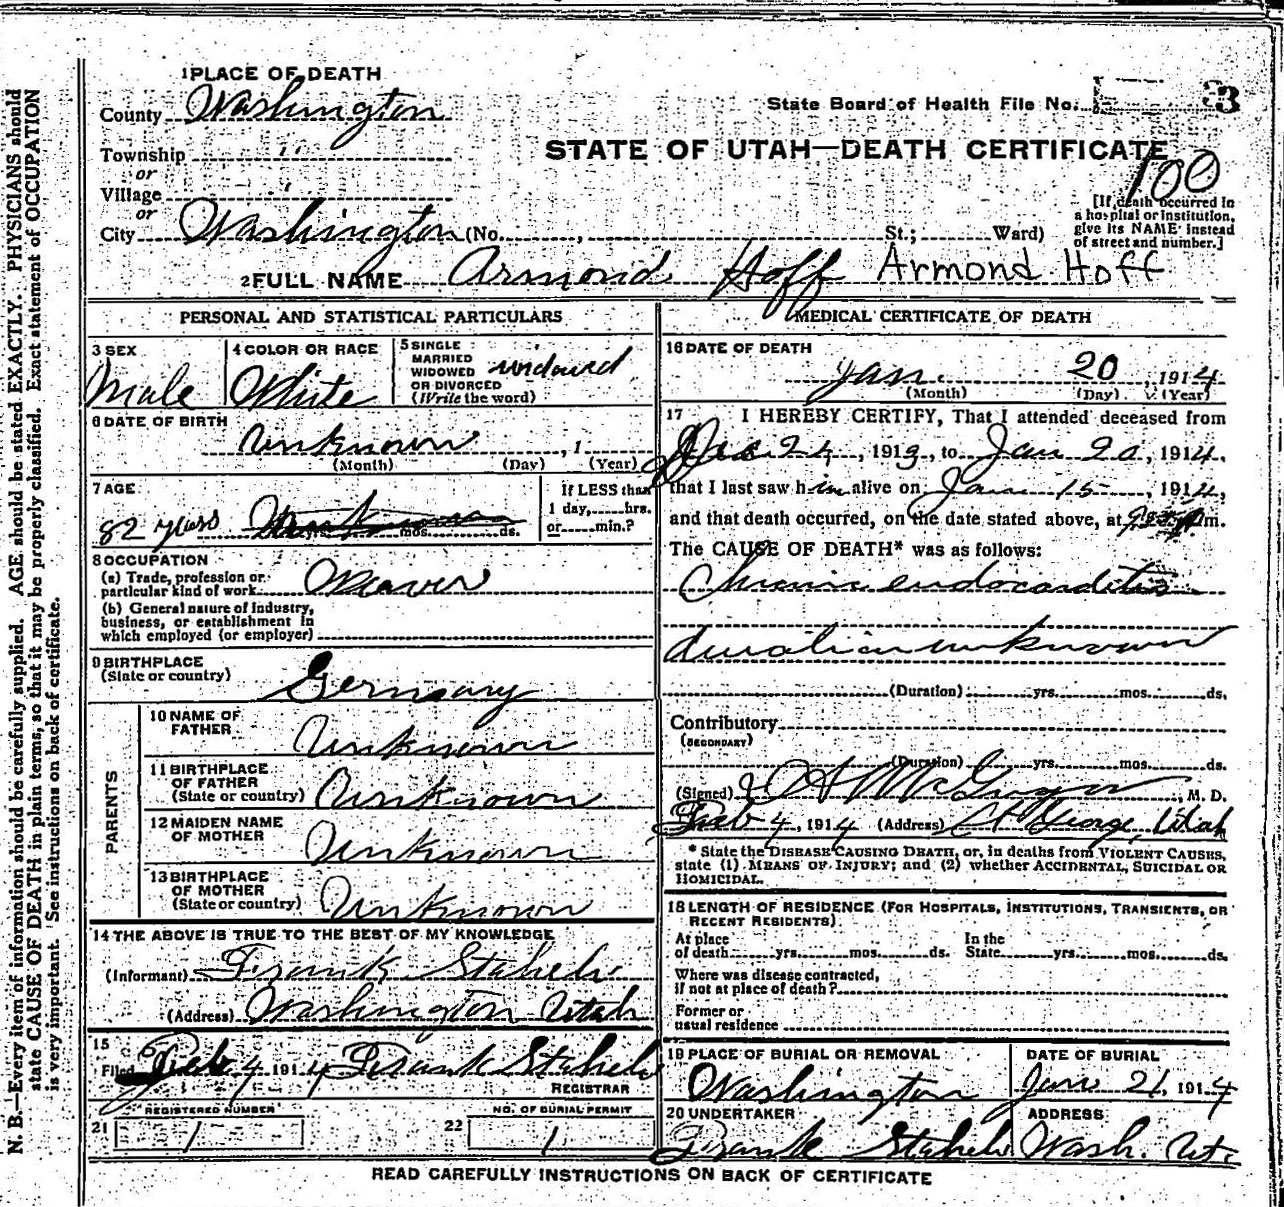 1 PLACE OF DEATH
County Washington
State Board of Health File No. 3
Township "
or
STATE OF UTAH—DEATH CERTIFICATE
100
Village "
or
City Washington (No. , St.; Ward)
[If death occurred in
a hospital or institution,
give its NAME instead
of street and number.]
2 FULL NAME Armond Hoff Armond Hoff
PERSONAL AND STATISTICAL PARTICULARS
3 SEX
Male
4 COLOR OR RACE
White
5 SINGLE
MARRIED
WIDOWED
OR DIVORCED
(Write the word)
widowed
6 DATE OF BIRTH
unknown , 1
(Month) (Day) (Year)
7 AGE
82 years mos. ds.
If LESS than
1 day, hrs.
or min.?
8 OCCUPATION
(a) Trade, profession or
particular kind of work Weaver
(b) General nature of industry,
business, or establishment in
which employed (or employer)
9 BIRTHPLACE
(State or country)
Germany
PARENTS
10 NAME OF
FATHER
Unknown
11 BIRTHPLACE
OF FATHER
(State or country) Unknown
12 MAIDEN NAME
OF MOTHER
Unknown
13 BIRTHPLACE
OF MOTHER
(State or country) Unknown
14 THE ABOVE IS TRUE TO THE BEST OF MY KNOWLEDGE
(Informant) Frank Staheli
(Address) Washington Utah
15
Filed Feb 4 1914 Frank Staheli
REGISTRAR
REGISTERED NUMBER
21 1
NO. OF BURIAL PERMIT
22 1
MEDICAL CERTIFICATE OF DEATH
16 DATE OF DEATH
Jan. 20 , 1914
(Month) (Day) (Year)
17 I HEREBY CERTIFY, That I attended deceased from
Dec 24 , 1913, to Jan 20 , 1914,
that I last saw him alive on Jan 15 , 1914,
and that death occurred, on the date stated above, at m.
The CAUSE OF DEATH* was as follows:
Chronic endocarditis
duration unknown
(Duration) yrs. mos. ds.
Contributory
(SECONDARY)
(Duration) yrs. mos. ds.
(Signed) McGregor, M. D.
Feb 4, 1914 (Address) St George, Utah
* State the DISEASE CAUSING DEATH, or, in deaths from VIOLENT CAUSES,
state (1) MEANS OF INJURY; and (2) whether ACCIDENTAL, SUICIDAL OR
HOMICIDAL.
18 LENGTH OF RESIDENCE (FOR HOSPITALS, INSTITUTIONS, TRANSIENTS, OR
RECENT RESIDENTS)
At place
of death yrs. mos. ds.
In the
State yrs. mos. ds.
Where was disease contracted,
if not at place of death?
Former or
usual residence
19 PLACE OF BURIAL OR REMOVAL
Washington
DATE OF BURIAL
Jan 21, 1914
20 UNDERTAKER
Frank Staheli
ADDRESS
Wash. Ut.
READ CAREFULLY INSTRUCTIONS ON BACK OF CERTIFICATE
N. B.—Every item of information should be carefully supplied. AGE should be stated EXACTLY. PHYSICIANS should
state CAUSE OF DEATH in plain terms, so that it may be properly classified. Exact statement of OCCUPATION
is very important. See instructions on back of certificate.